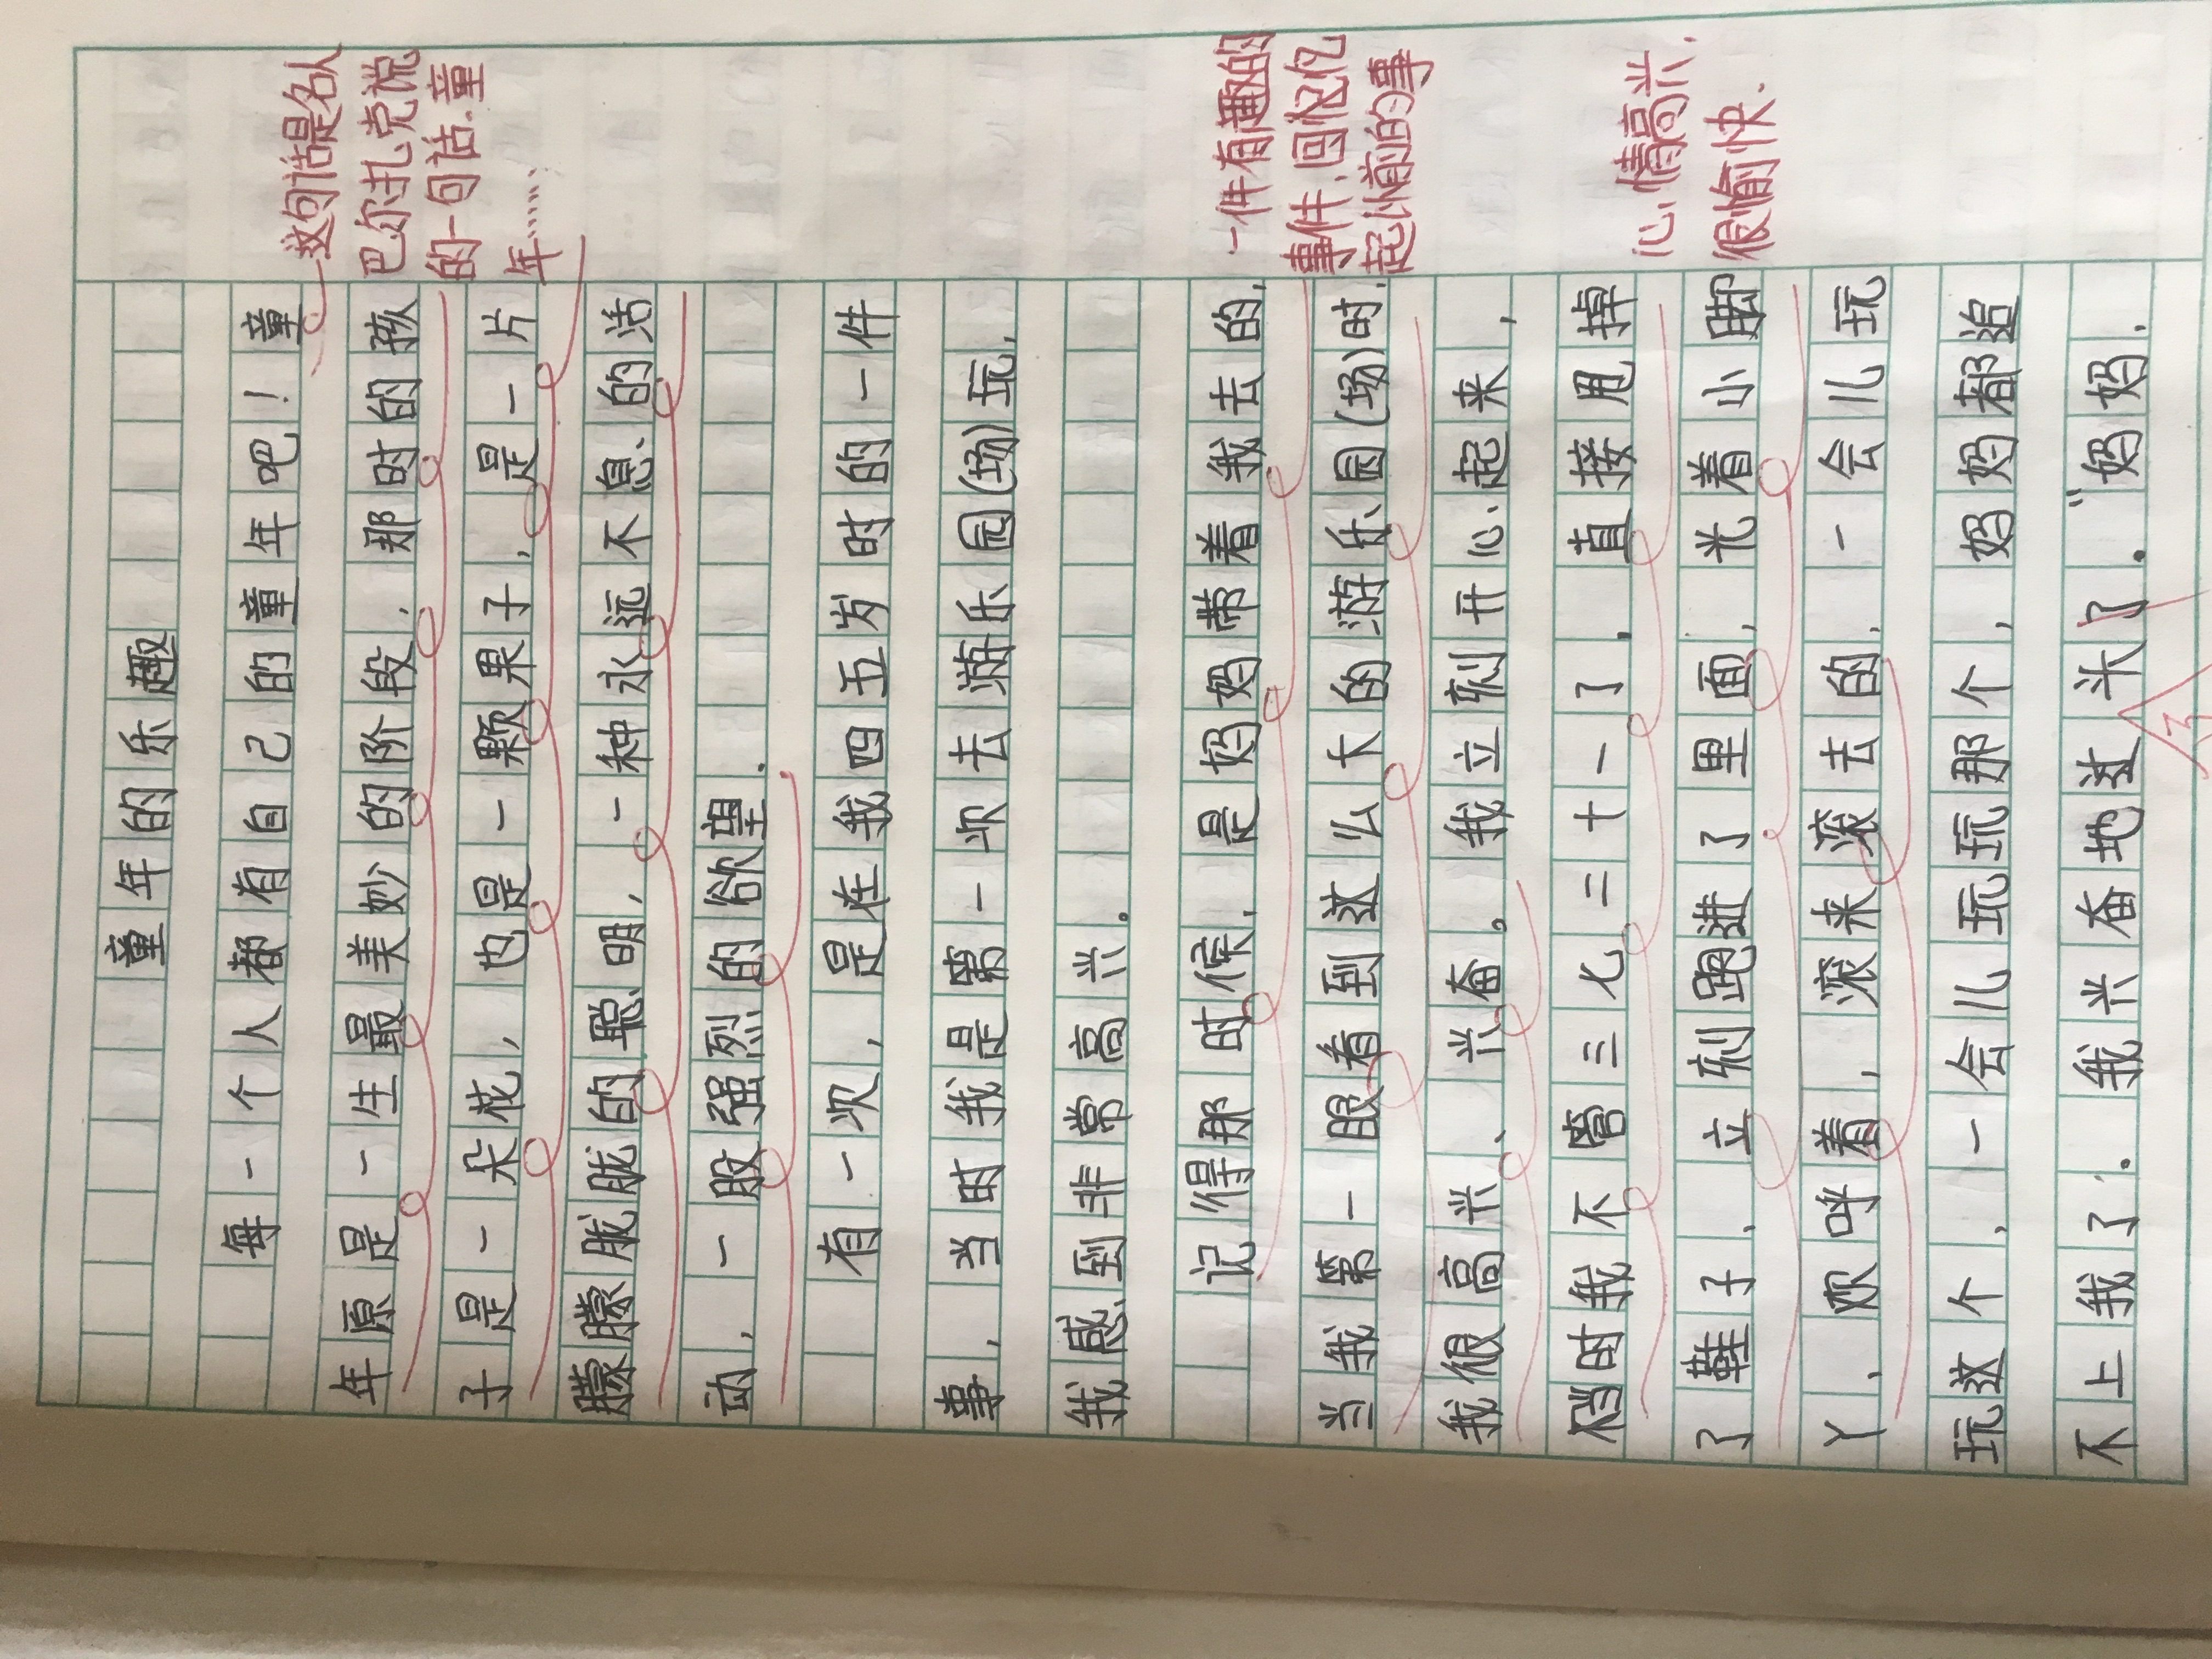 童年的乐趣
每一个人都有自己的童年吧！童
年原是一生最美妙的阶段，那时的孩
子是一朵花，也是一颗果子，是一片
朦朦胧胧的聪明，一种永远不息的活
动，一股强烈的欲望．
有一次，是在我四五岁时的一件
事，当时我是第一次去游乐园(场)玩，
我感到非常高兴。
记得那时候，是妈妈带着我去的，
当我第一眼看到这么大的游乐园(场)时，
我很高兴、兴奋。我立刻开心起来，
当时我不管三七二十一了，直接甩掉
了鞋子、立刻跑进了里面，光着小脚
丫，欢呼着，滚来滚去的，一会儿玩
玩这个，一会儿玩玩那个，妈妈都追
不上我了．我兴奋地过头了。"妈妈．
这句话是名人
巴尔扎克说
的一句话.童
年……
一件有趣的
事件,回忆忆
起以前的事
心情高兴．
很愉快．